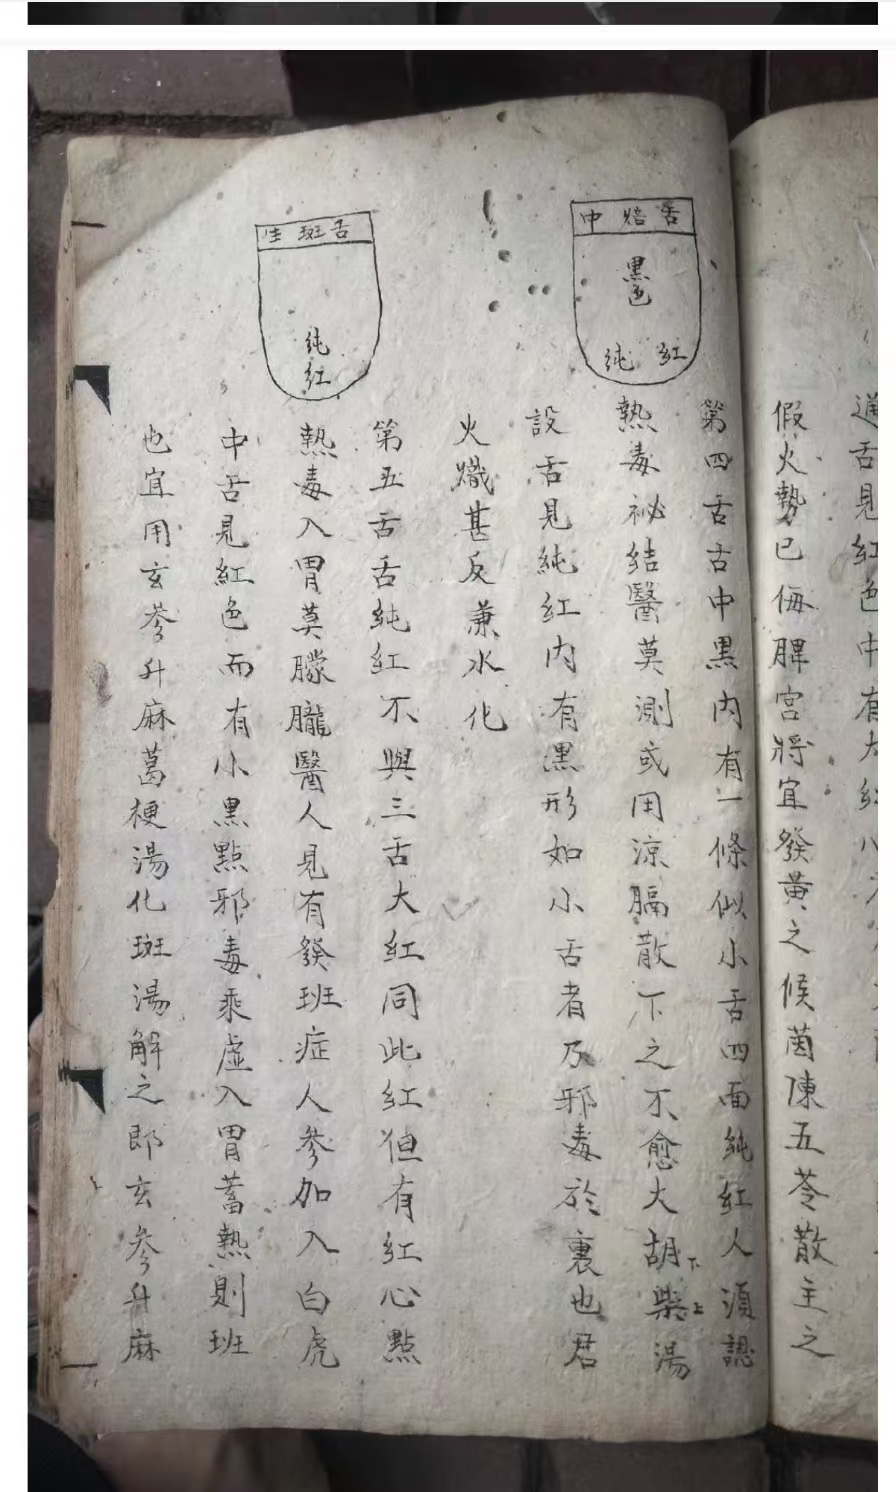 通舌見紅色中有大紅
假火勢已侮脾宮將宜發黃之候茵陳五苓散主之
舌焙中
黒色
純紅
第四舌舌中黒內有一條似小舌四面純紅人須認
熱毒祕結醫莫測或用涼膈散下之不愈大胡柴湯
下
上
設舌見純紅內有黒形如小舌者乃邪毒於裏也君
火熾甚反兼水化
舌斑生
純紅
第五舌舌純紅不與三舌大紅同此紅但有紅心點
熱毒入胃莫朦朧醫人見有發班症人參加入白虎
中舌見紅色而有小黒點邪毒乘虛入胃蓄熱則班
也宜用玄參升麻葛梗湯化斑湯解之即玄參升麻